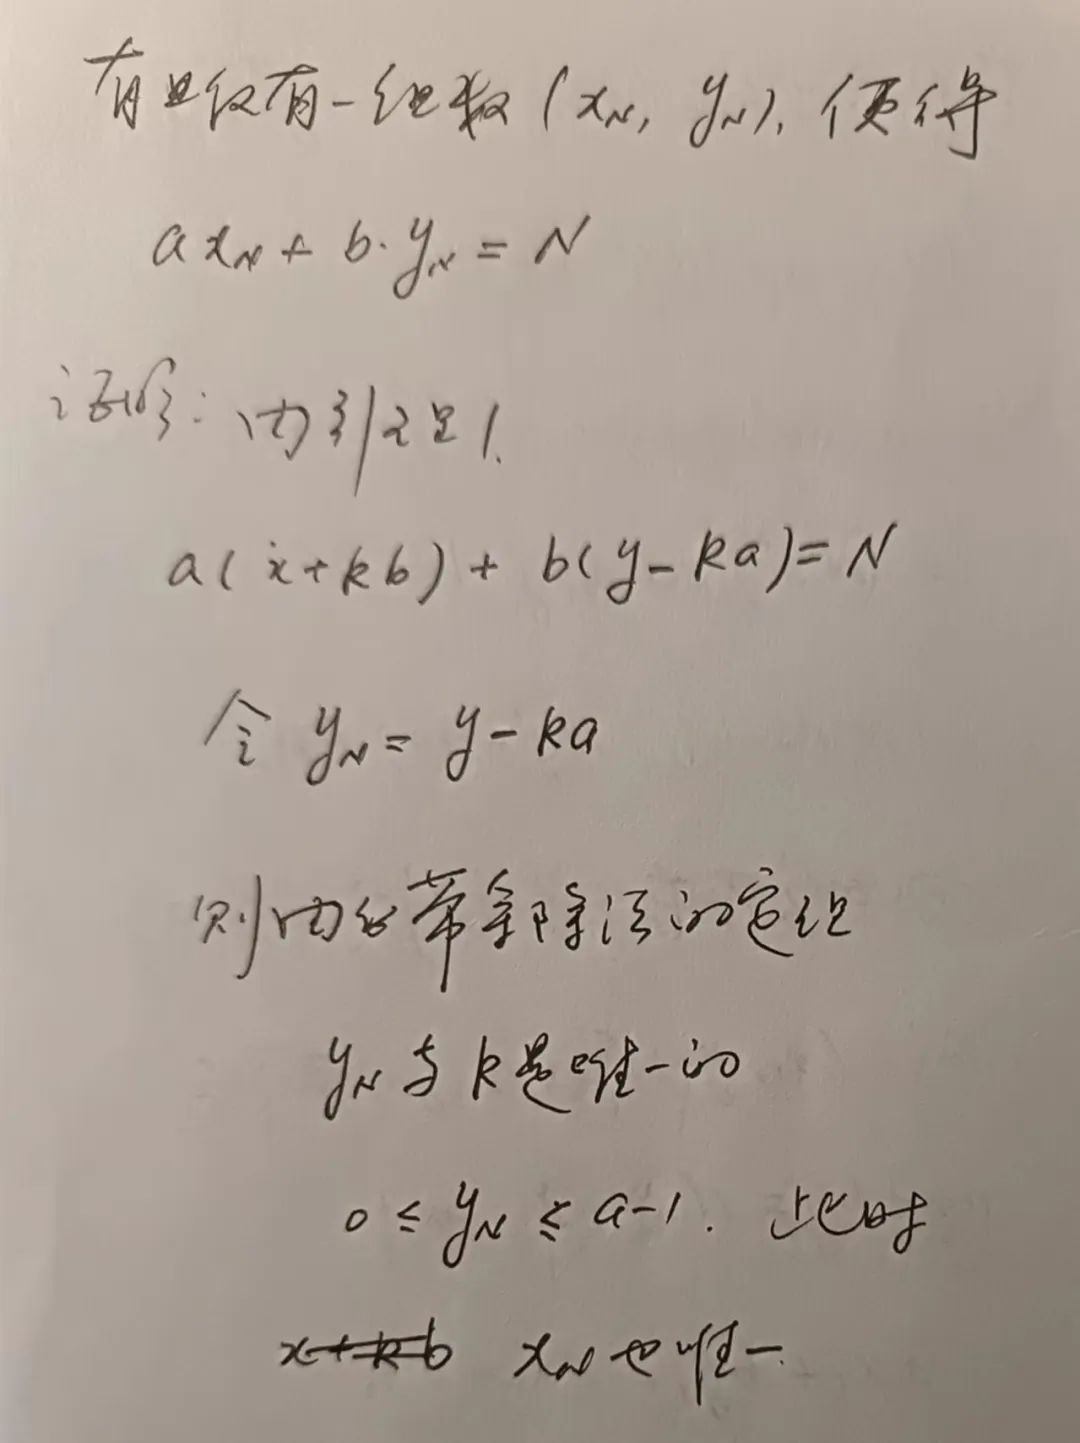 有且仅有一组数(x_N, y_N), 使得
a x_N + b·y_N = N
证明: 由引理1.
a(x+kb) + b(y-ka) = N
令 y_N = y - ka
则由带余除法的定理
y_N 与 k 是唯一的
0 ≤ y_N ≤ a-1. 此时
x_N 也唯一.